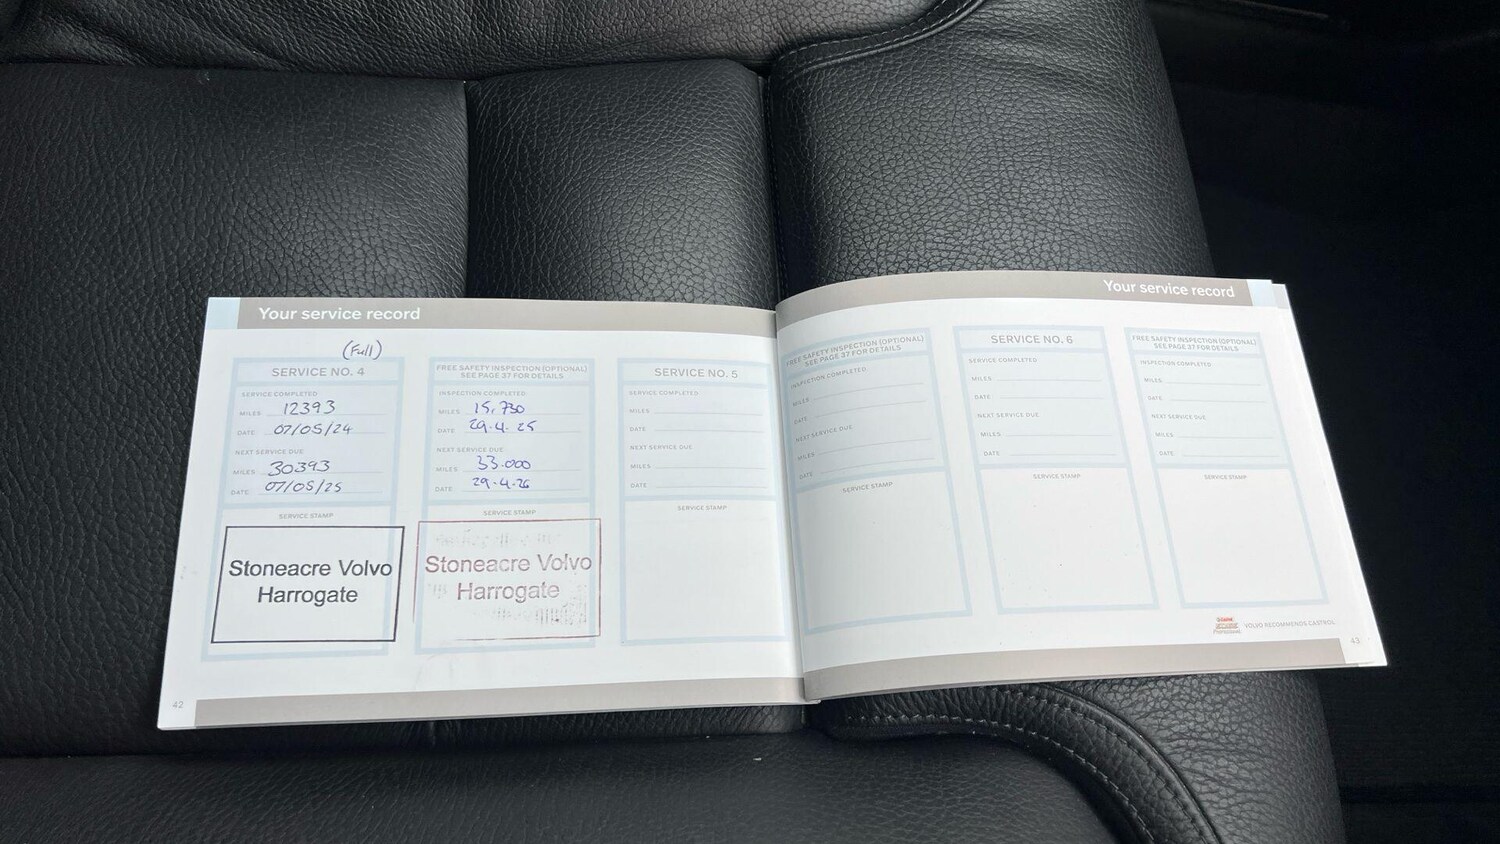 Your service record
(Full)
SERVICE NO. 4
SERVICE COMPLETED:
MILES 12393
DATE: 07/05/24
NEXT SERVICE DUE:
MILES: 30393
DATE: 07/05/25
SERVICE STAMP
Stoneacre Volvo
Harrogate
FREE SAFETY INSPECTION (OPTIONAL)
SEE PAGE 37 FOR DETAILS
INSPECTION COMPLETED:
MILES: 15,730
DATE: 29.4.25
NEXT SERVICE DUE:
MILES: 33.000
DATE: 29.4.26
SERVICE STAMP
Stoneacre Volvo
Harrogate
SERVICE NO. 5
SERVICE COMPLETED:
MILES:
DATE:
NEXT SERVICE DUE:
MILES:
DATE:
SERVICE STAMP
42
Your service record
FREE SAFETY INSPECTION (OPTIONAL)
SEE PAGE 37 FOR DETAILS
INSPECTION COMPLETED:
MILES:
DATE:
NEXT SERVICE DUE:
MILES:
DATE:
SERVICE STAMP
SERVICE NO. 6
SERVICE COMPLETED:
MILES:
DATE:
NEXT SERVICE DUE:
MILES:
DATE:
SERVICE STAMP
FREE SAFETY INSPECTION (OPTIONAL)
SEE PAGE 37 FOR DETAILS
INSPECTION COMPLETED:
MILES:
DATE:
NEXT SERVICE DUE:
MILES:
DATE:
SERVICE STAMP
VOLVO RECOMMENDS CASTROL
43